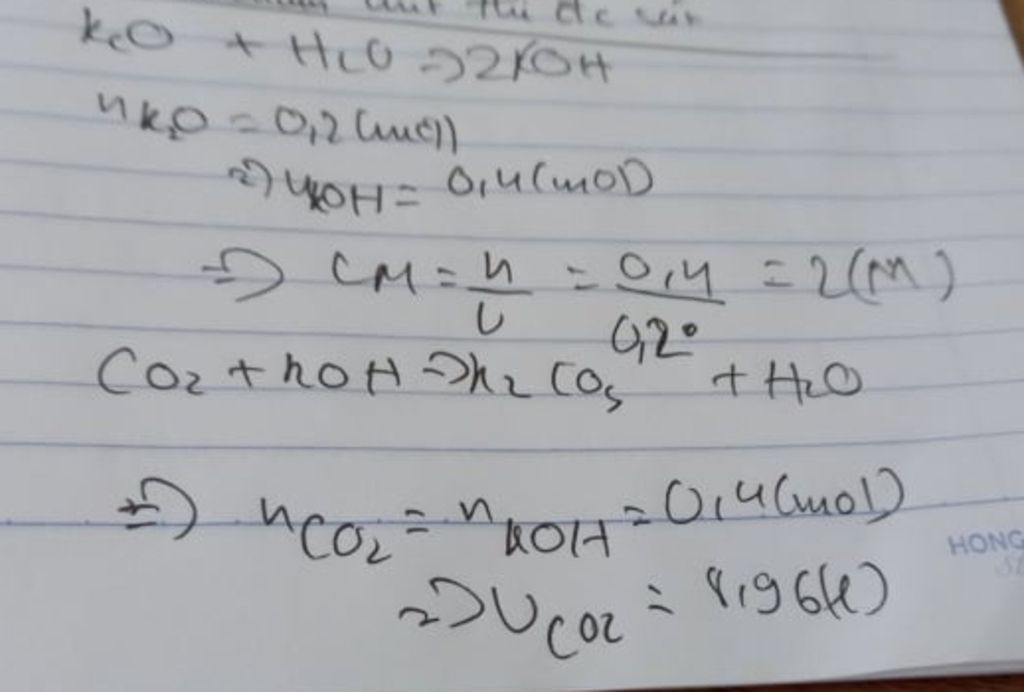 K₂O + H₂O => 2KOH
nK₂O = 0,2 (mol)
=> nKOH = 0,4 (mol)
=> CM = n/V = 0,4/0,2 = 2 (M)
CO₂ + KOH => K₂CO₃ + H₂O
=> nCO₂ = nKOH = 0,4 (mol)
HONG
=> VCO₂ = 8,96 (l)